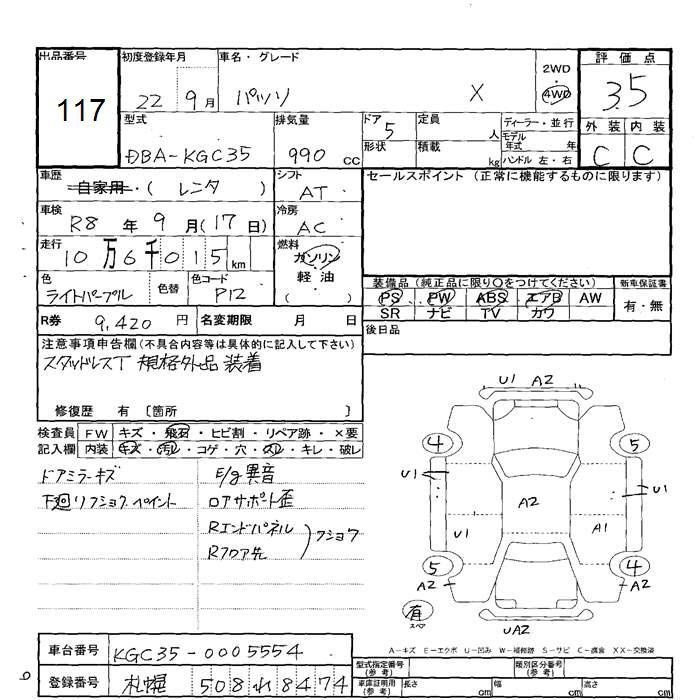 出品番号 117
初度登録年月 22 9月
車名・グレード パッソ X
2WD 4WD
評価点 3.5
外装 C 内装 C
型式 DBA-KGC35
排気量 990 cc
ドア 5
形状
定員 人
積載 kg
ディーラー・並行
モデル年式 年
ハンドル 左・右
車歴 自家用・( レンタ )
シフト AT
セールスポイント (正常に機能するものに限ります)
車検 R8 年 9 月(17日)
冷房 AC
走行 10万6千015 km
燃料 ガソリン 軽油 ( )
色 ライトパープル 色替
色コード P12
装備品 (純正品に限り○をつけてください)
PS PW ABS エアB AW
SR ナビ TV カワ
新車保証書 有・無
R券 9,420 円
名変期限 月 日
後日品
注意事項申告欄(不具合内容等は具体的に記入して下さい)
スタッドレスT 規格外品 装着
修復歴 有 〔箇所 〕
検査員記入欄
FW キズ・飛石・ヒビ割・リペア跡・×要
内装 キズ・汚レ・コゲ・穴・スレ・キレ・破レ
ドアミラーキズ
下廻リフショク ペイント
E/g異音
ロアサポート歪
Rエンドパネル
Rフロア先
フショク
U1 A2
4 5
U1 U1
A2
U1 A1
5 4
A2 A2
有 スペア
UA2
A-キズ E-エクボ U-凹み W-補修跡 S-サビ C-腐食 XX-交換済
車台番号 KGC35-0005554
登録番号 札幌 508 れ 8474
型式指定番号(参考)
類別区分番号(参考)
車庫証明用(参考) 長さ cm 幅 cm 高さ cm